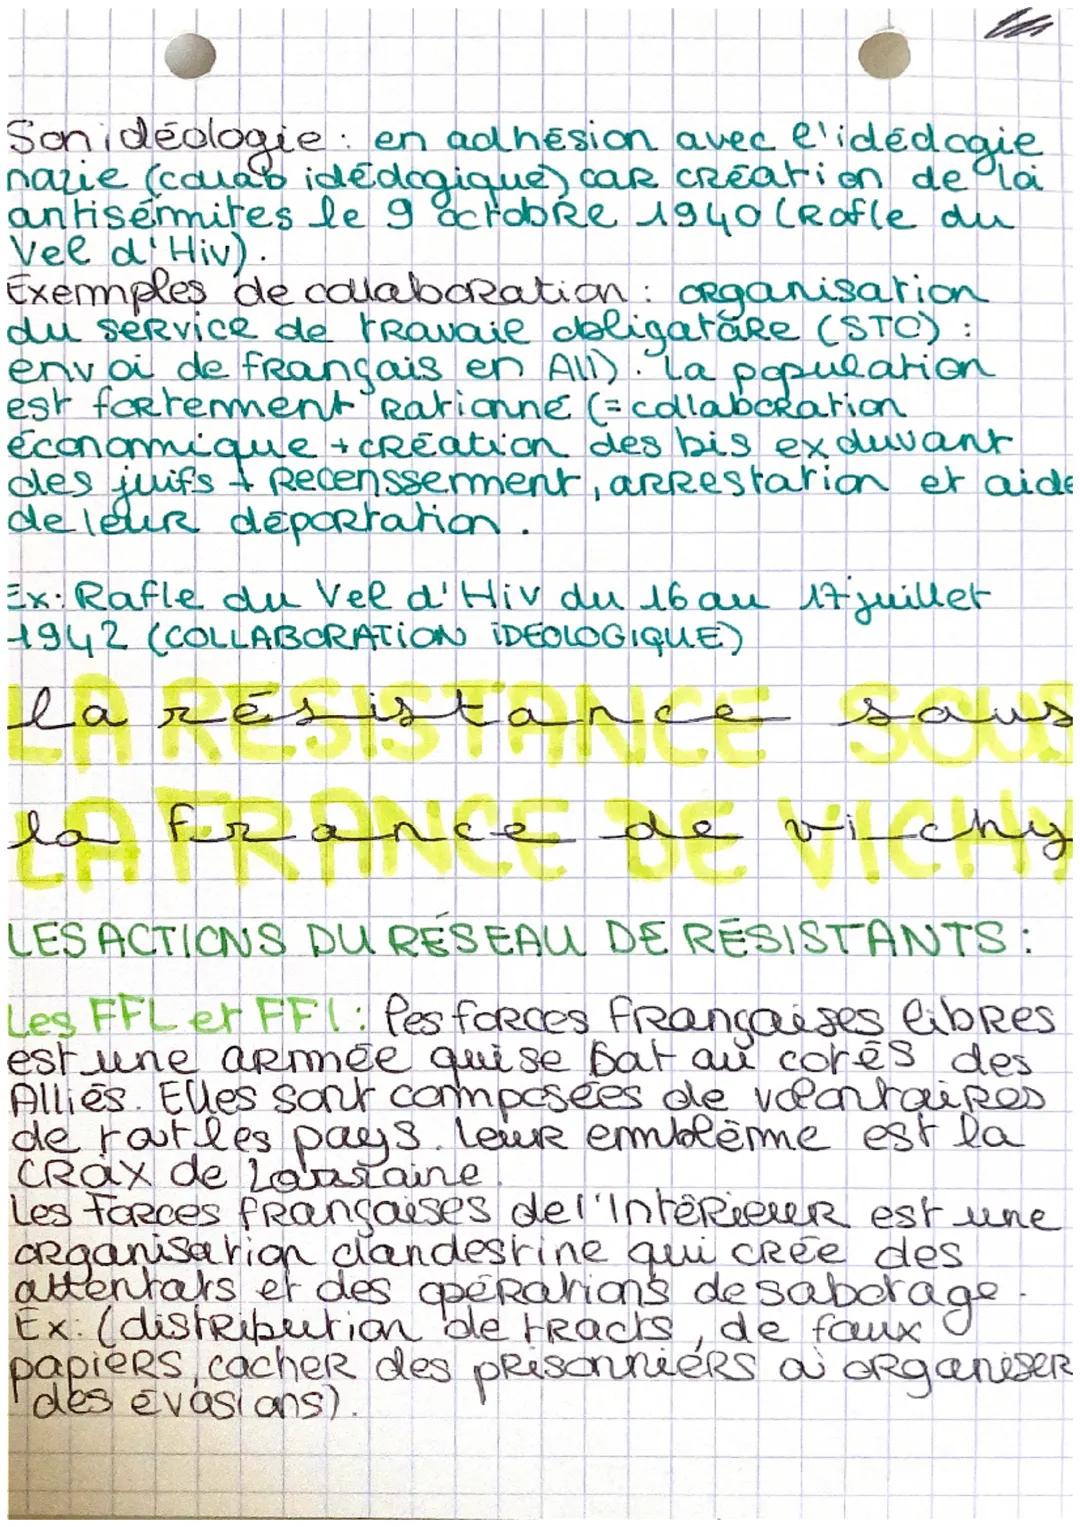 Son idéologie : en adhésion avec l'idéologie
nazie (collab idéologique) car création de loi
antisémites le 9 octobre 1940 (Rafle du
Vel d'Hiv).
Exemples de collaboration : organisation
du service de travaie obligatoire (STO) :
envoi de français en All). La population
est fortement rationné (= collaboration
économique + création des lois excluvant
des juifs + Recenssement, arrestation et aide
de leur déportation.
Ex: Rafle du Vel d'Hiv du 16 au 17 juillet
1942 (COLLABORATION IDÉOLOGIQUE)
LA RÉSISTANCE SOUS
la résistance sous
LA FRANCE DE VICHY
la france de vichy
LES ACTIONS DU RÉSEAU DE RÉSISTANTS :
Les FFL et FFI : les forces françaises libres
est une armée qui se bat au cotés des
Alliés. Elles sont composées de volontaires
de tout les pays. Leur emblème est la
croix de Lorraine.
Les forces françaises de l'Intérieur est une
organisation clandestine qui crée des
attentats et des opérations de sabotage.
Ex: (distribution de tracts, de faux
papiers, cacher des prisonniers ou organiser
des évasions).